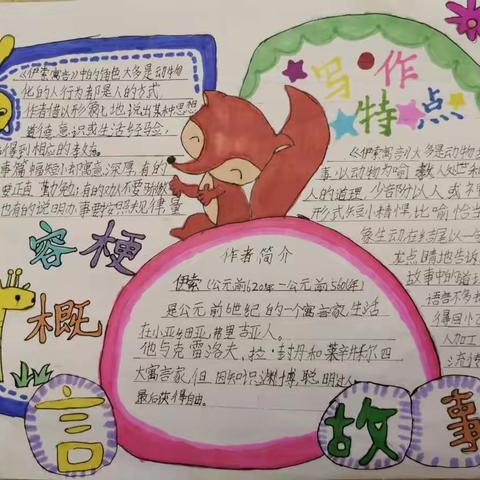 《伊索寓言》中的角色大多是动物
化的人行为都是人的方式
作者借以形象化地说出某种思想
道德意识或生活经验,
得到相应的教
事篇幅短小却寓意深厚,有的
要正直 勤勉;有的劝人不要骄傲
也有的说明办事要按照规律,量
容梗
概
写·作
特点
《伊索寓言》大多是动物故
事,以动物为喻,教人处世和
人的道理,少部份以人或
形式短小精悍,比喻恰当
象生动在
龙点睛地告诉
故事中的道
语言不多
得回
人加工
流传
作者简介
伊索(公元前620年—公元前560年)
是公元前6世纪的一个寓言家,生活
在小亚细亚,弗里吉亚人。
他与克雷洛夫,拉·封丹和莱辛并称四
大寓言家,但因知识渊博,聪明过人,
最后获得自由。
言
故
事